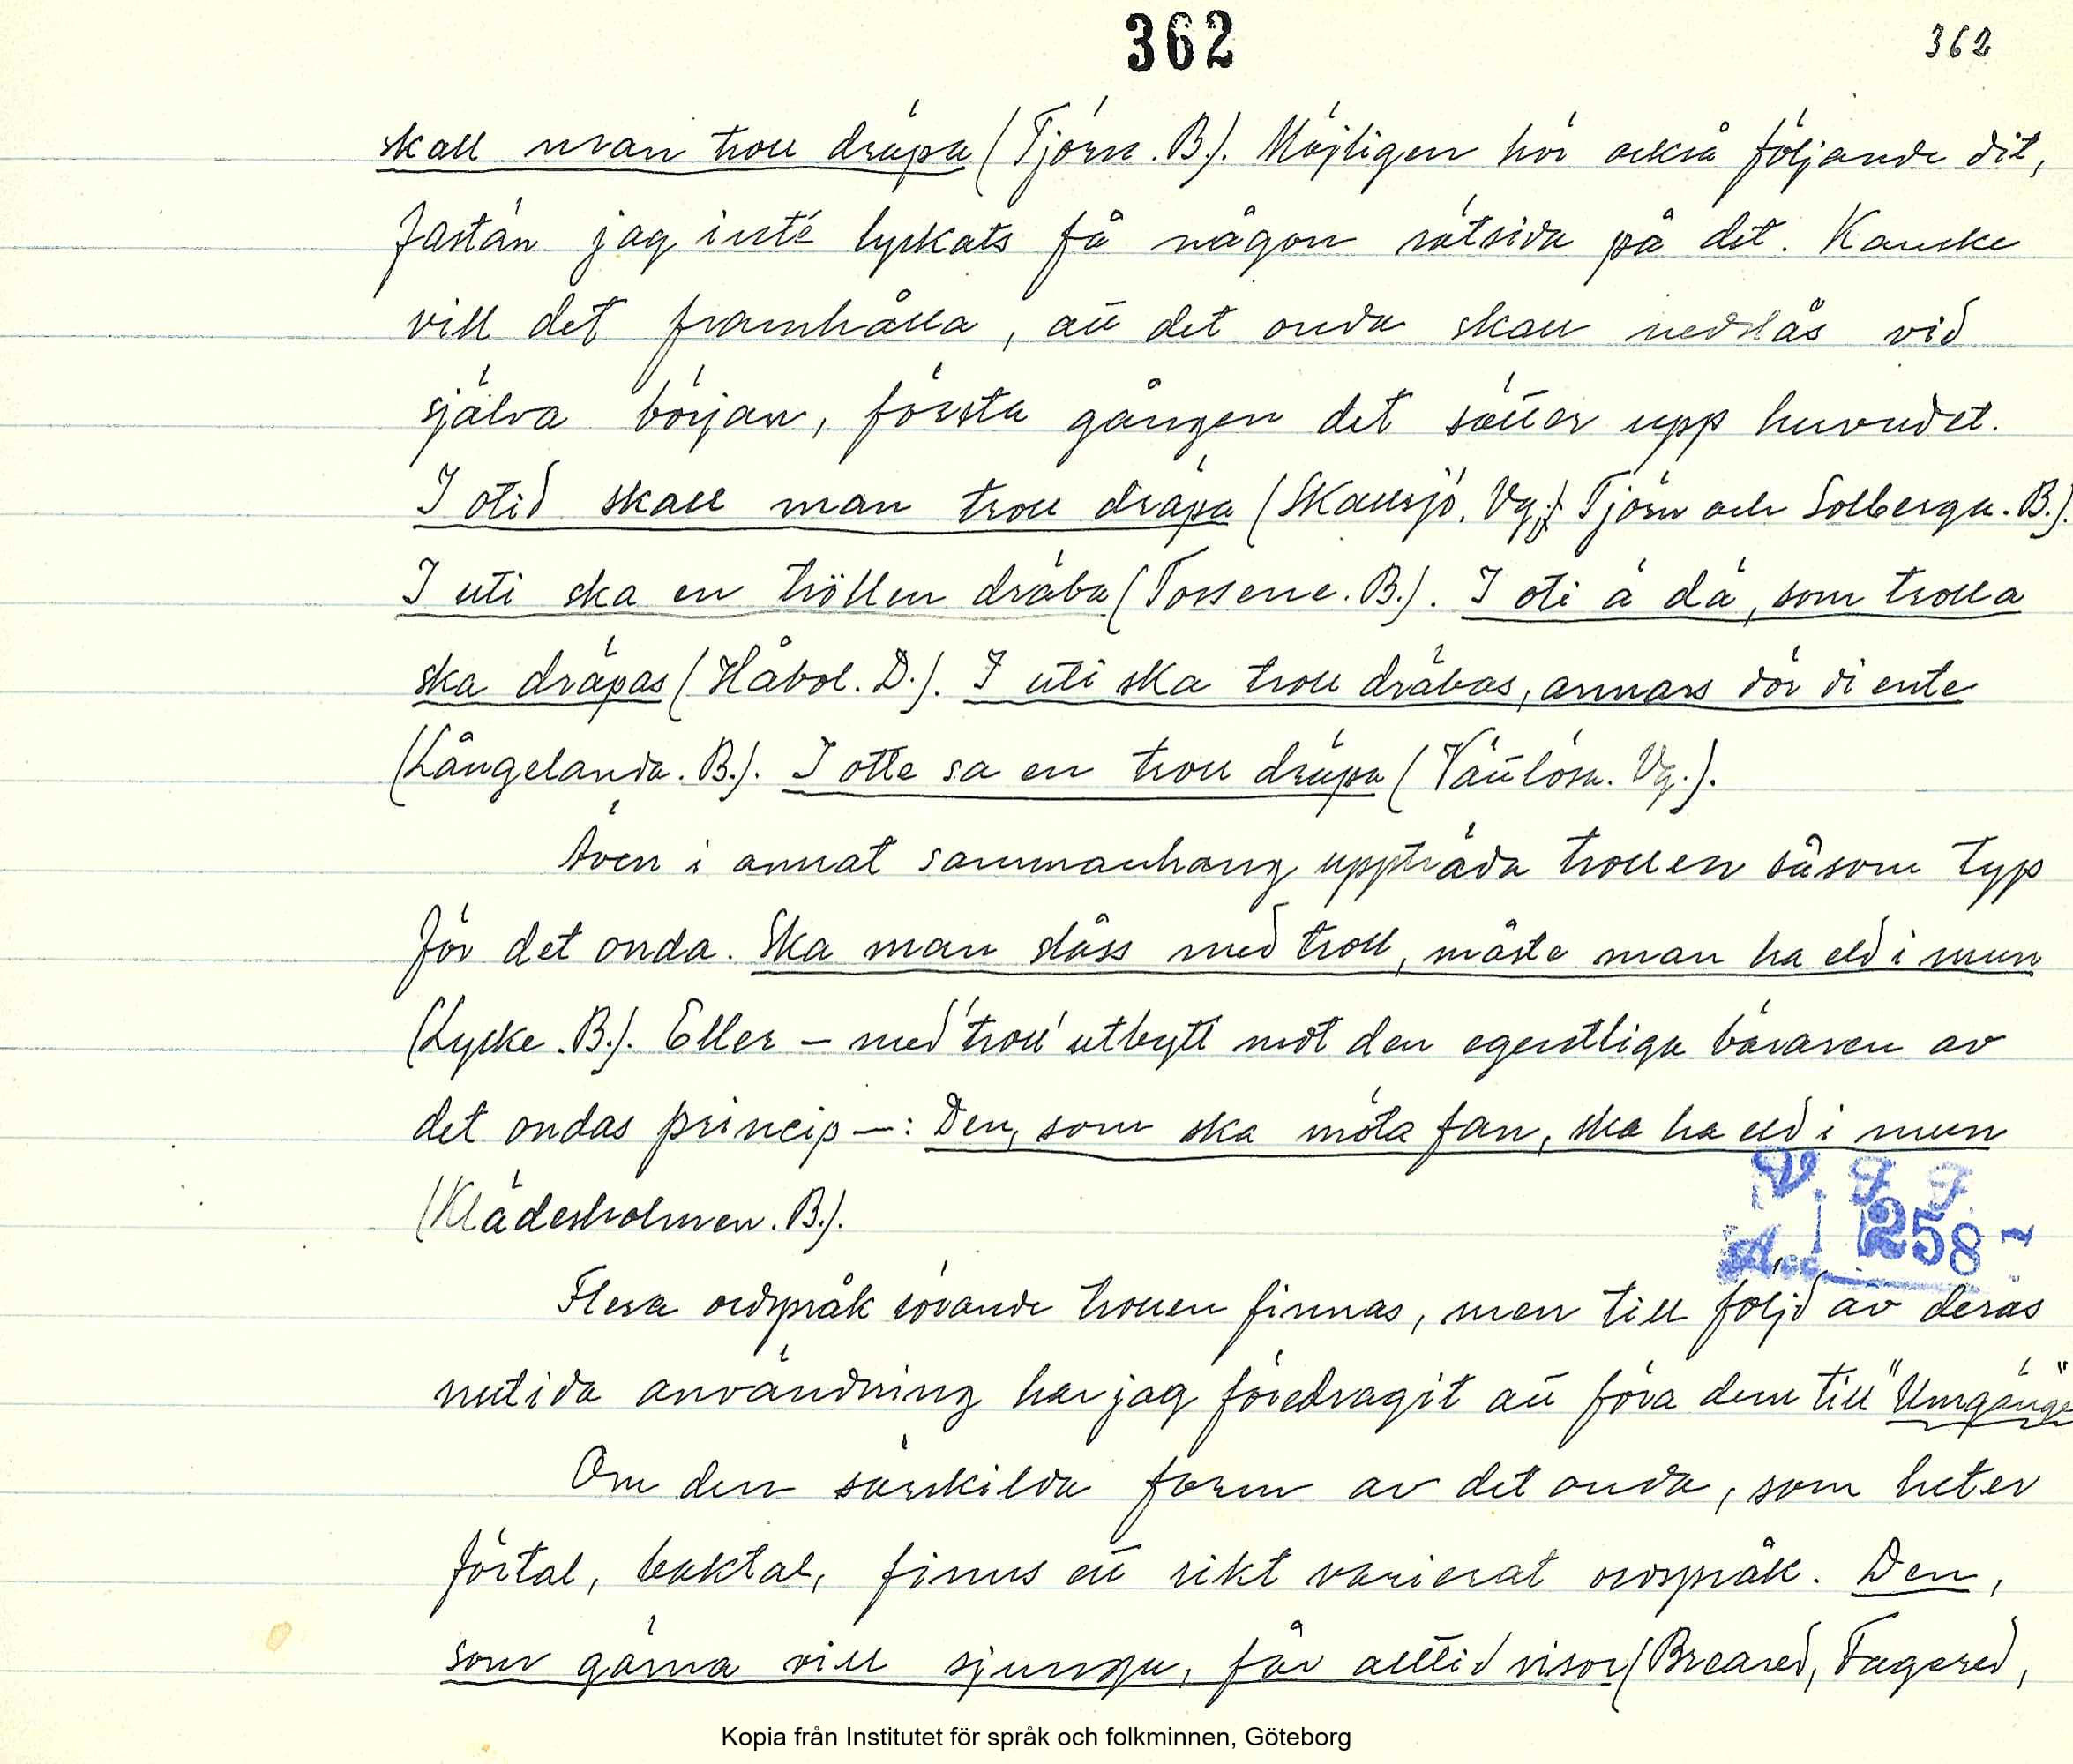 362
362
skall man troll dräpa (Tjörn. B.). Möjligen hör också följande dit,
fastän jag inte lyckats få någon rätsida på det. Kanske
vill det framhålla, att det onda skall nedslås vid
själva början, första gången det sätter upp huvudet.
I otid skall man troll dräpa (Skallsjö. Vg; Tjörn och Solberga. B.).
I uti ska en tröllen dräba (Tossene. B.). I oti ä dä, som trolla
ska dräpas (Håbol. D.). I uti ska troll dräbas, annars dör di ente
(Långelanda. B.). I otte sa en troll dräpa (Vättlösa. Vg.).
Även i annat sammanhang uppträda trollen såsom typ
för det onda. Ska man slåss med troll, måste man ha eld i mun
(Lycke. B.). Eller – med 'troll' utbytt mot den egentliga bäraren av
det ondas princip –: Den, som ska möta fan, ska ha eld i mun
(Klädesholmen. B.).
V. F. F.
Acc 1258
Flera ordspråk rörande trollen finnas, men till följd av deras
nutida användning har jag föredragit att föra dem till "Umgänge"
Om den särskilda form av det onda, som heter
förtal, baktal, finns ett rikt varierat ordspråk. Den,
som gärna vill sjunga, får alltid visor (Breared, Fagered,
Kopia från Institutet för språk och folkminnen, Göteborg